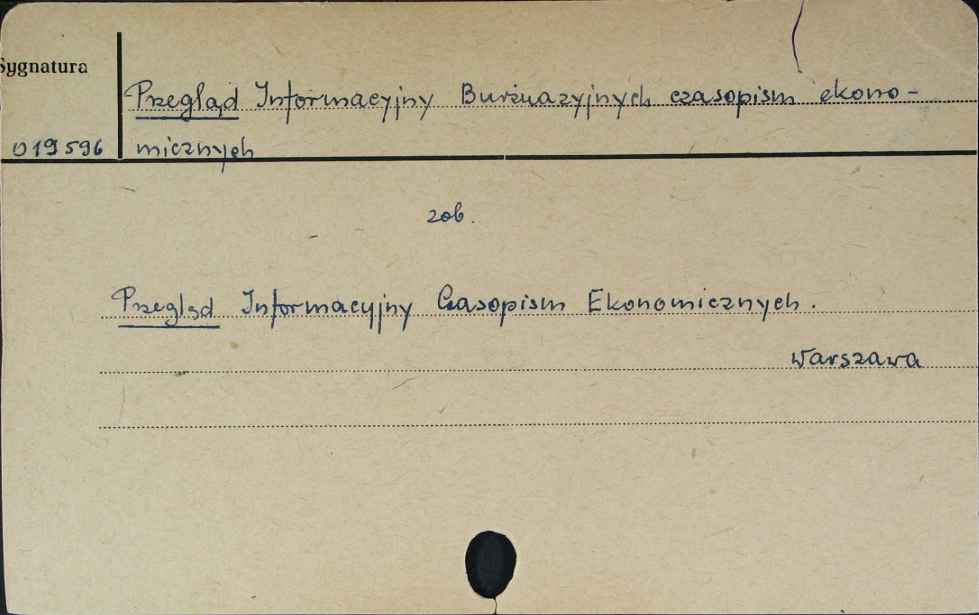 Sygnatura
Przegląd Informacyjny Burżuazyjnych czasopism ekono-
019596 micznych
zob.
Przegląd Informacyjny Czasopism Ekonomicznych.
Warszawa